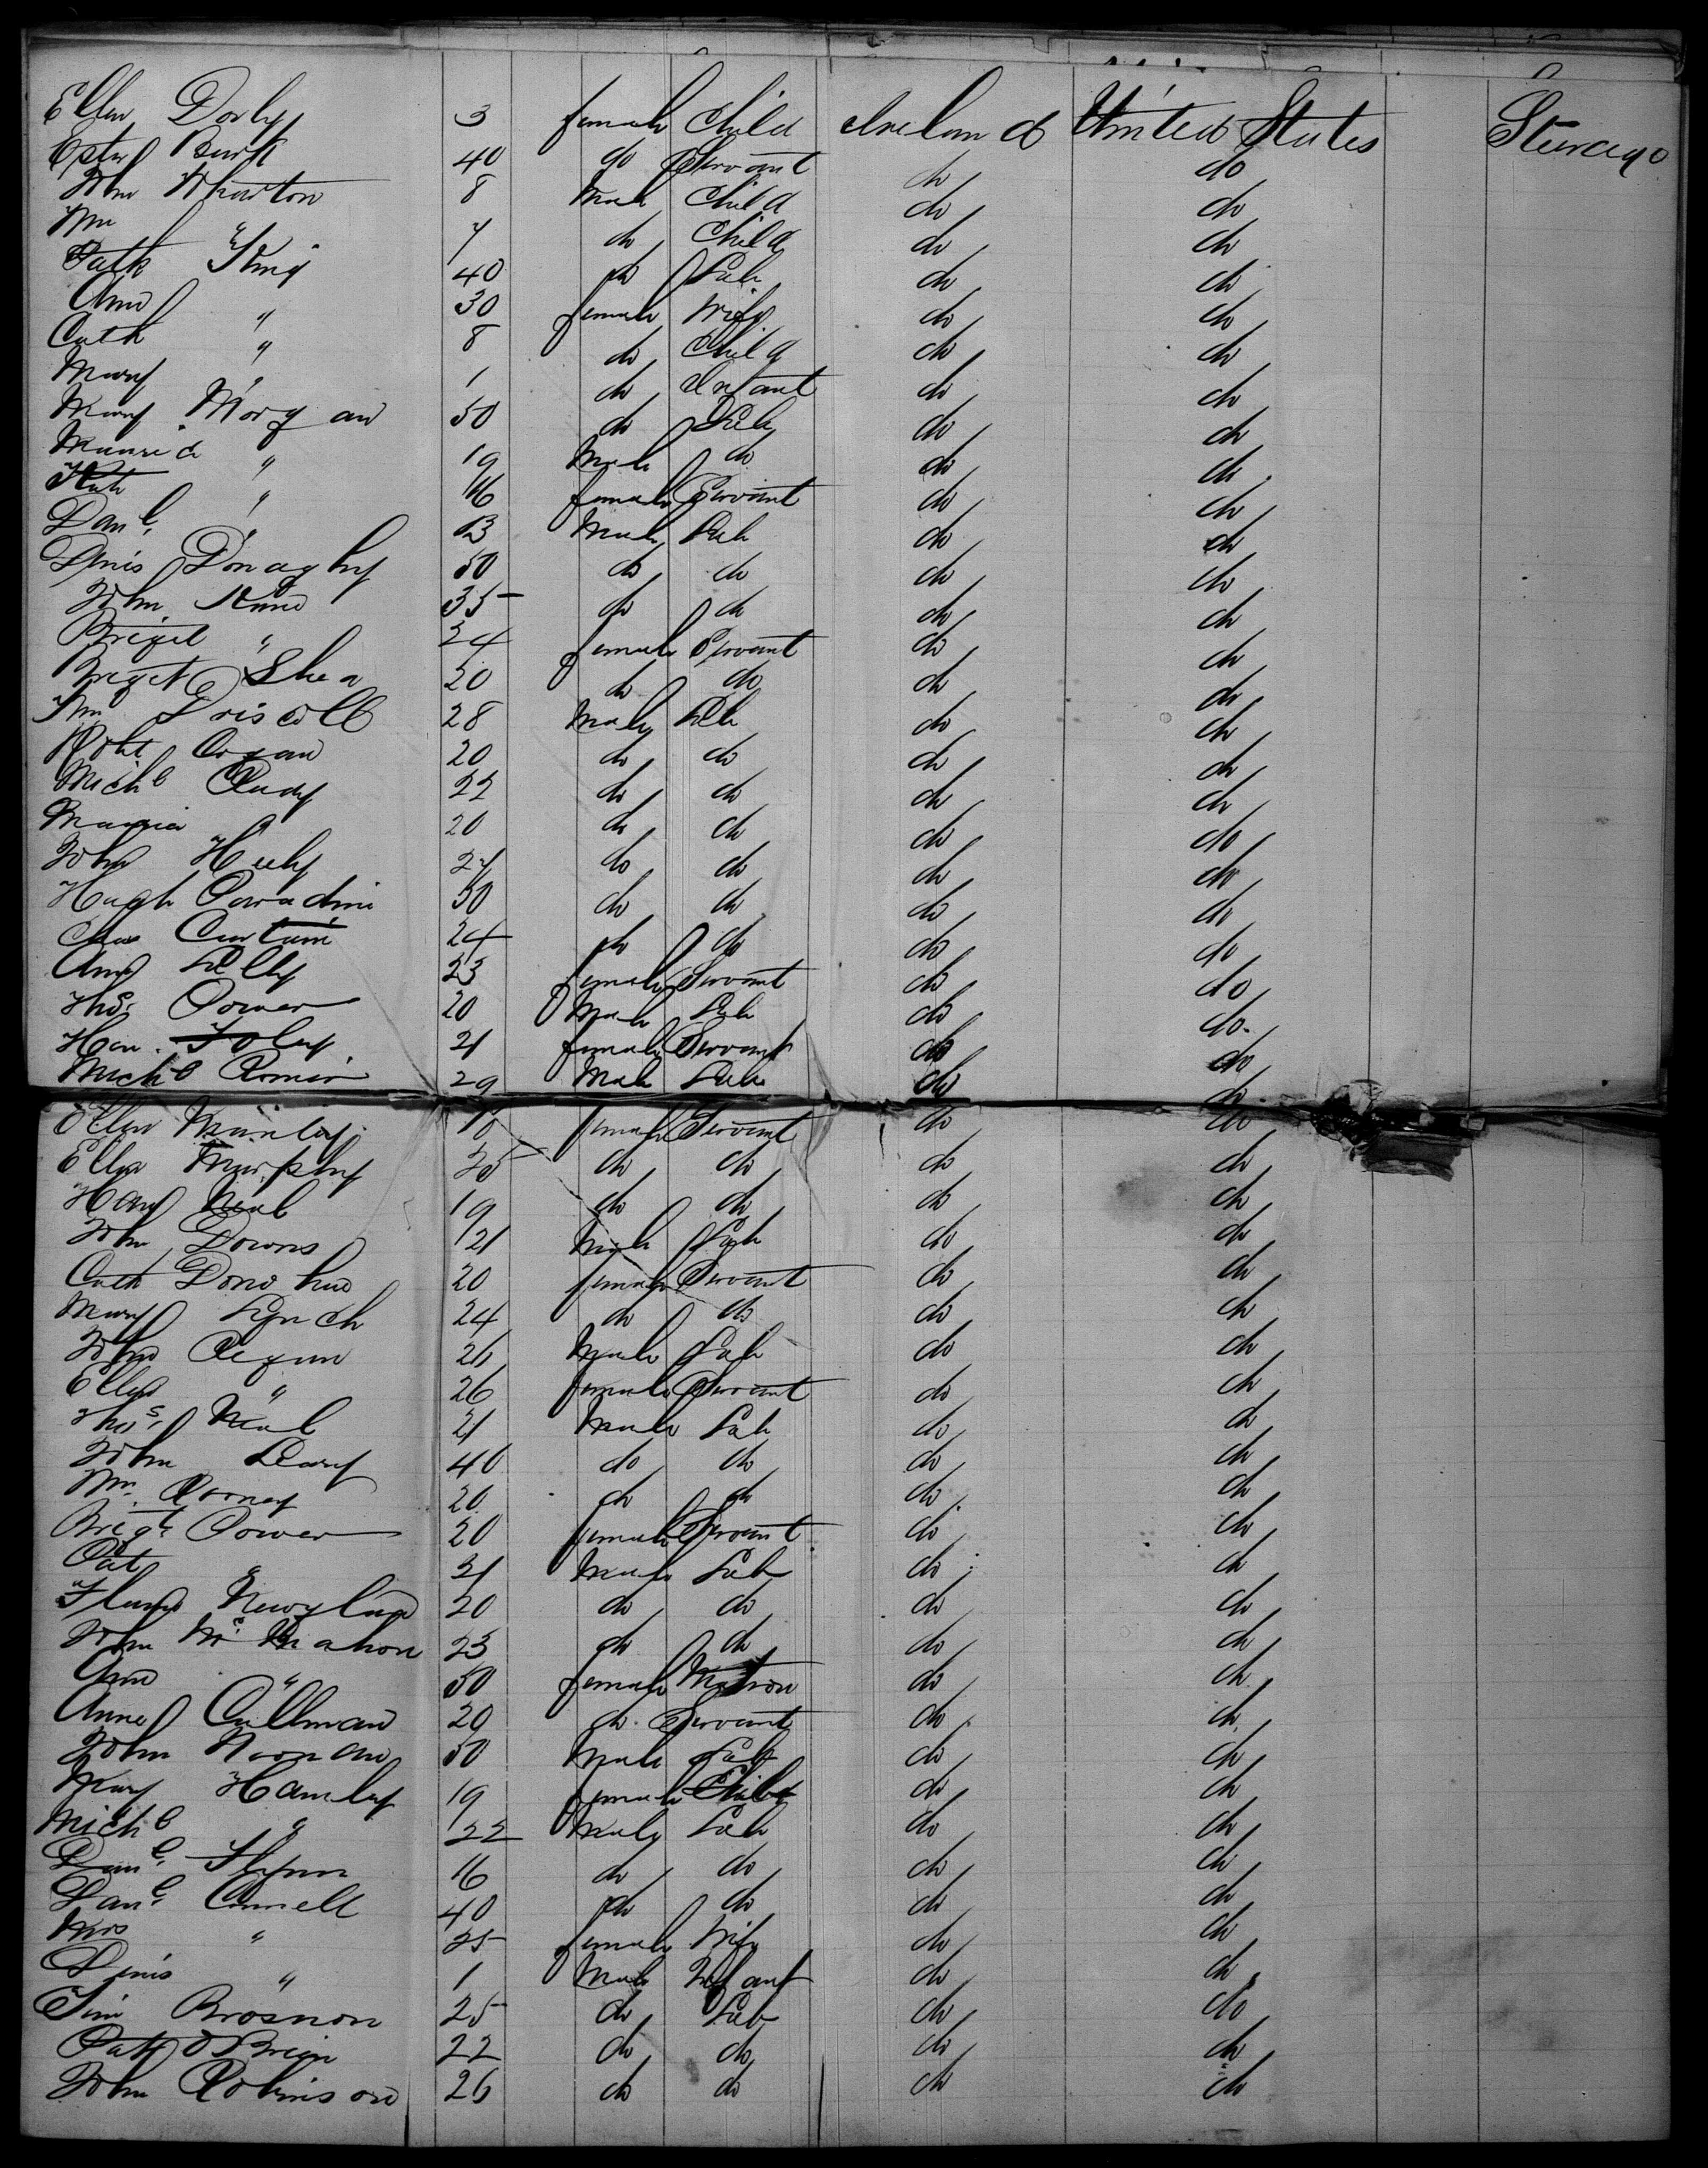 Ellen Dorly 3 female Child Ireland United States Steerage
Ester Burk 40 do Servant do do
John Wharton 8 Male Child do do
Wm " 7 do Child do do
Patk King 40 do Lab do do
Ann " 30 female Wife do do
Cath " 8 do Child do do
Mary " 1 do Infant do do
Mary Morgan 50 do do do
Maurice " 19 Male do do do
Kate " 16 female Servant do do
Danl. " 13 Male Lab do do
Denis Donaghy 50 do do do do
John Kane 35 do do do do
Briget " 24 female Servant do do
Briget Shea 20 do do do do
Driscoll 28 Male Lab do do
Robt. Organ 20 do do do do
Michl 22 do do do do
20 do do do do
John Heely 24 do do do do
Hugh 50 do do do do
Chas Curtain 24 do do do do
Ann Lilly 23 female Servant do do
Thos. Power 20 Male Lab do do
Han. Foley 21 female Servant do do
Michl 29 Male Lab do do
Ellen female Servant do do
Ellen Murphy 25 do do do do
Neal 19 do do do do
John Downs 21 Male Lab do do
Cath Donohue 20 female Servant do do
Mary Lynch 24 do do do do
John Regan 26 Male Lab do do
Ellen " 26 female Servant do do
Thos. Neal 21 Male Lab do do
John Leary 40 do do do do
Wm. Rooney 20 do do do do
Brigt. Power 20 female Servant do do
Pat " 21 Male Lab do do
20 do do do do
John McMahon 23 do do do do
Ann " 50 female Matron do do
Anne Cullinan 20 do Servant do do
John Noonan 50 Male Lab do do
Mary Hanley 19 female Child do do
Michl " 22 Male Lab do do
Danl. Flynn 16 do do do do
Danl. Connell 40 do do do do
Mrs " 25 female Wife do do
Denis " 1 Male Infant do do
Tim Brosnon 25 do Lab do do
Patk O Brien 22 do do do do
John Robinson 26 do do do do